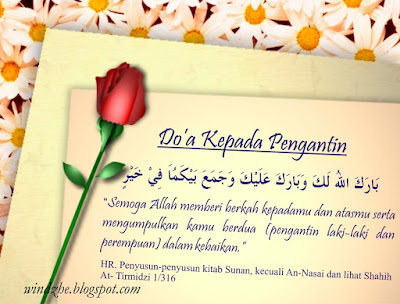 Do'a Kepada Pengantin
بَارَكَ اللهُ لَكَ وَبَارَكَ عَلَيْكَ وَجَمَعَ بَيْكَمُاَ فِيْ خَيْرٍ
“Semoga Allah memberi berkah kepadamu dan atasmu serta
mengumpulkan kamu berdua (pengantin laki-laki dan
perempuan) dalam kebaikan.”
HR. Penyusun-penyusun kitab Sunan, kecuali An-Nasai dan lihat Shahih
At- Tirmidzi 1/316
winazhe.blogspot.com